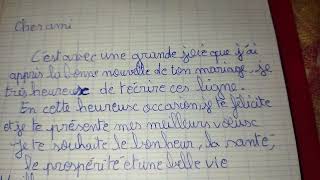 Cher ami
C'est avec une grande joie que j'ai
appris la bonne nouvelle de ton mariage. je
très heureuse de t'ecrire ces ligne.
En cette heureuse occasion, je te félicite
et je te présente mes meilleurs voeux
Je te souhaite le bonheur, la santé,
la prospérité et une belle vie